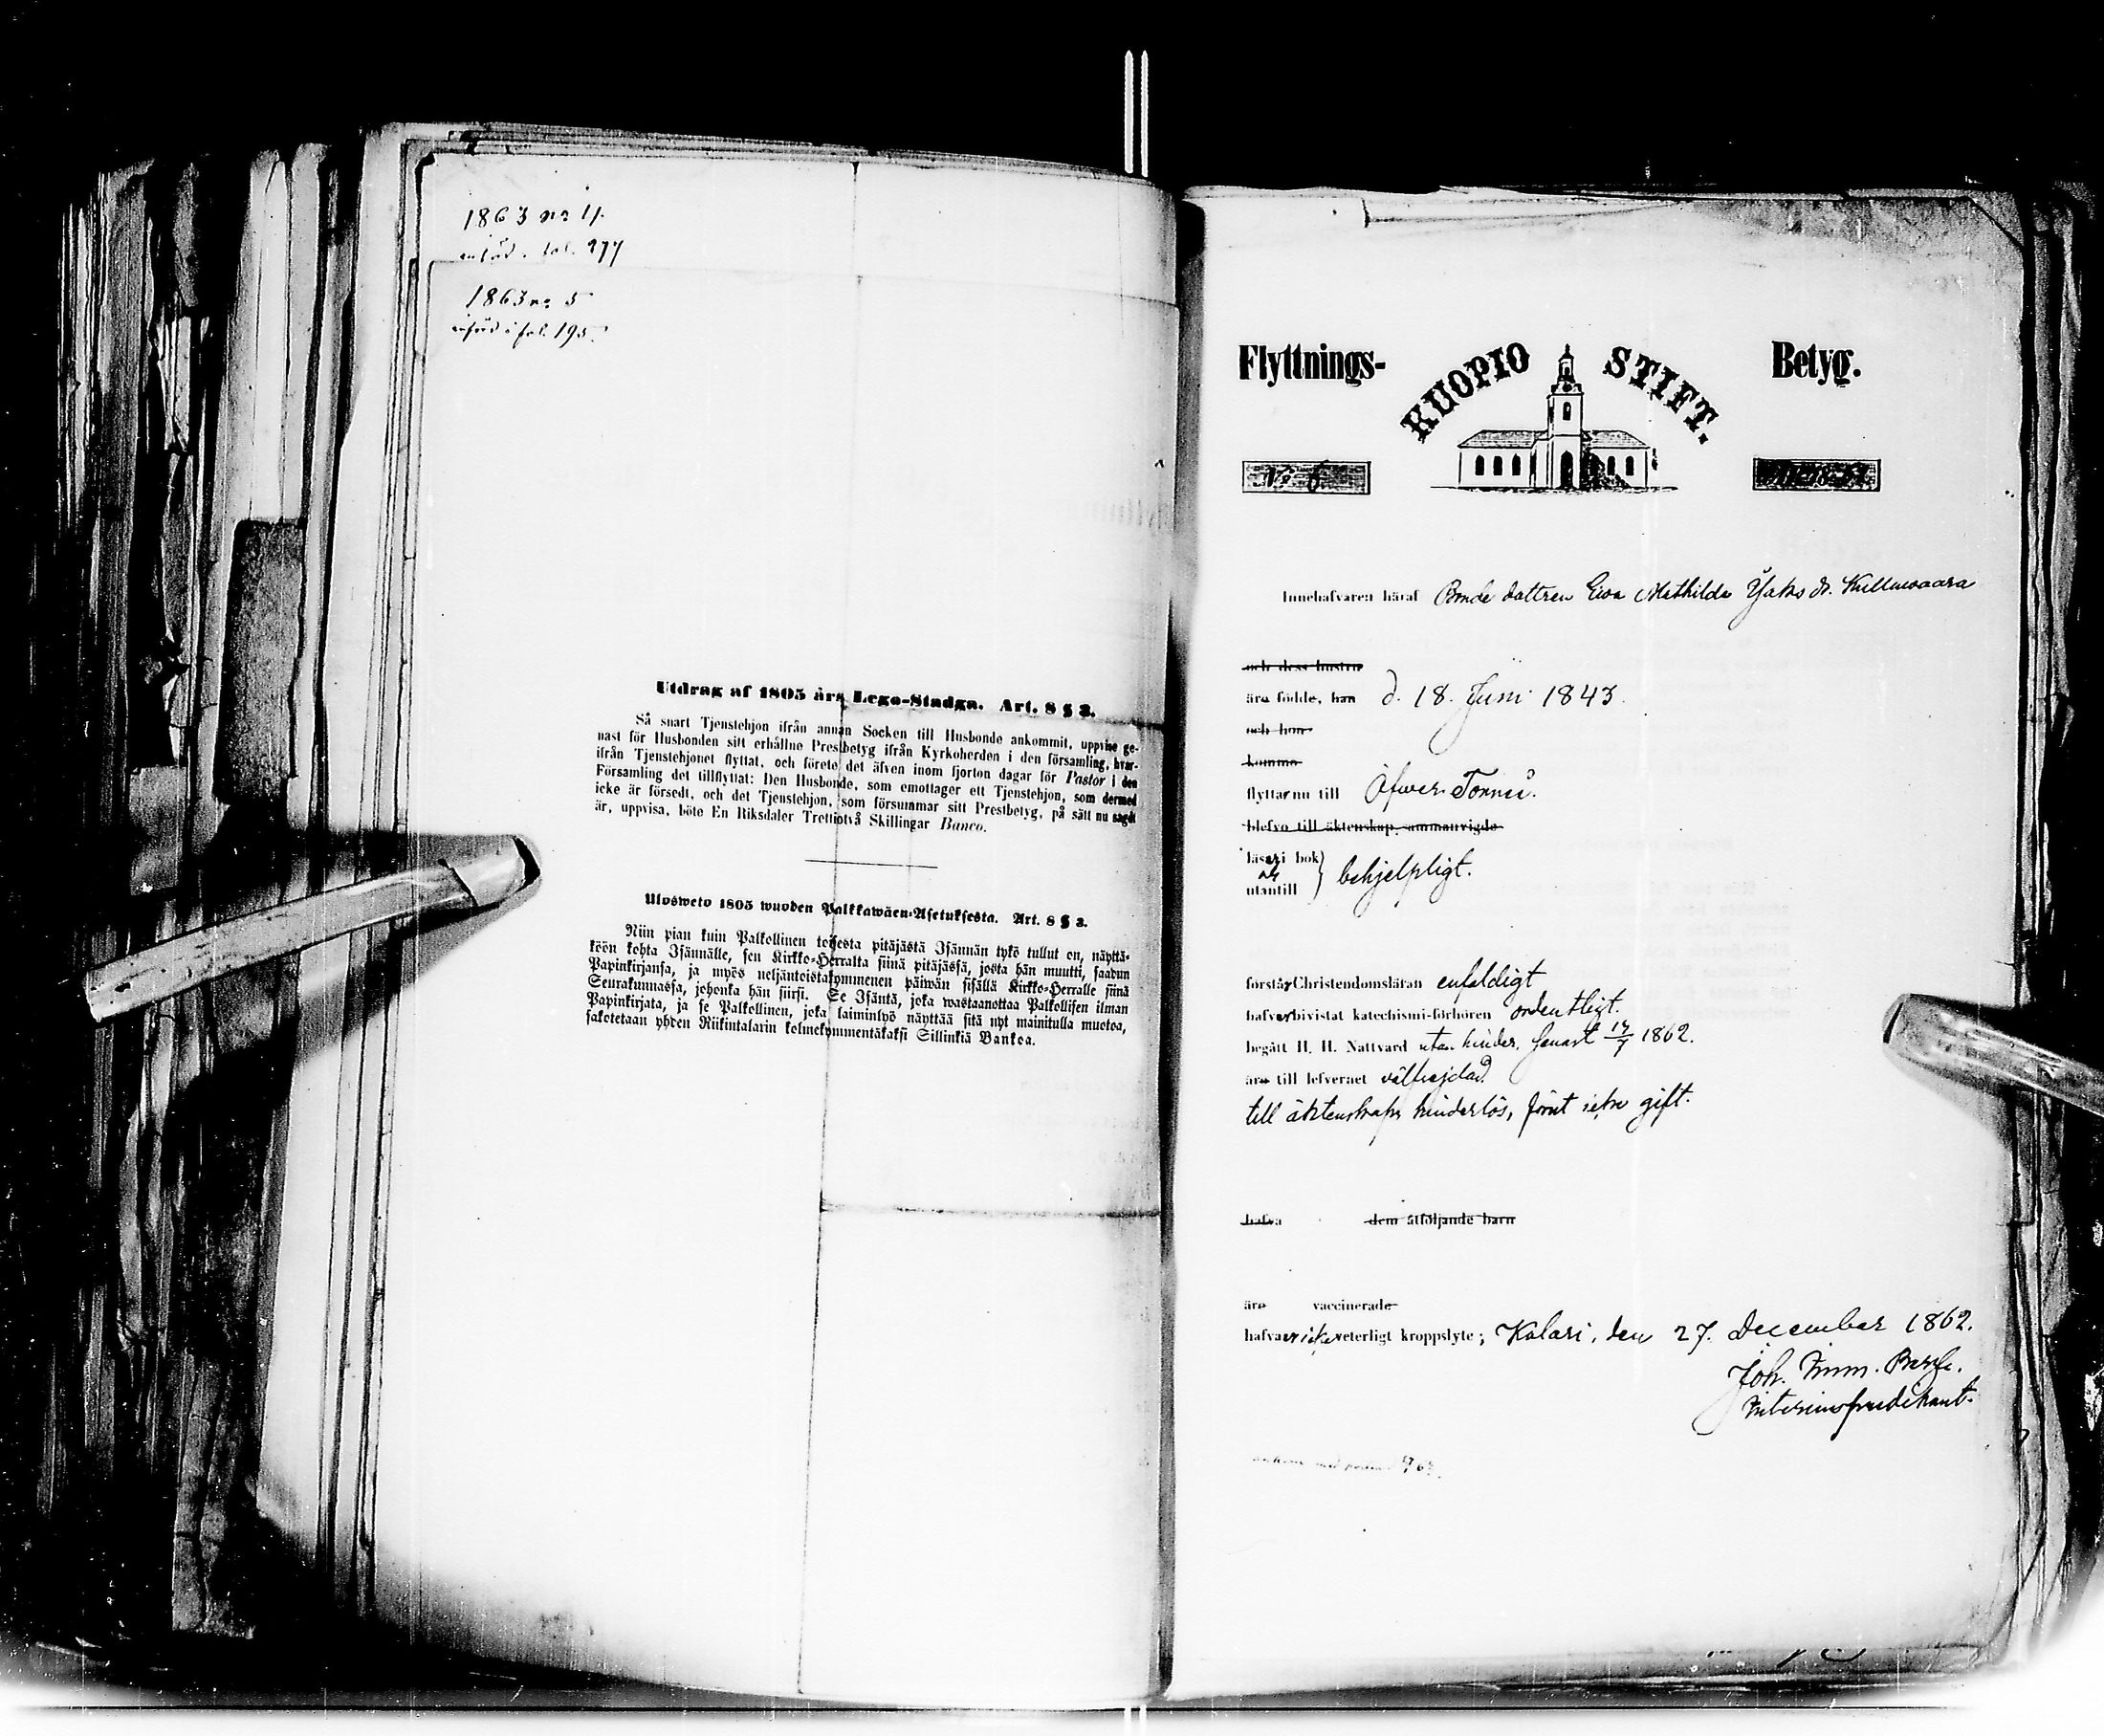 1863 no 4.
införd i fol. 277
1863 no 5
införd i fol. 195.
Utdrag af 1805 års Lego-Stadga. Art. 8 § 3.
Så snart Tjenstehjon ifrån annan Socken till Husbonde ankommit, uppvise ge-
nast för Husbonden sitt erhållne Prestbetyg ifrån Kyrkoherden i den församling, hvar-
ifrån Tjenstehjonet flyttat, och förete det äfven inom fjorton dagar för Pastor i den
Församling det tillflyttat: Den Husbonde, som emottager ett Tjenstehjon, som dermed
icke är försedt, och det Tjenstehjon, som försummar sitt Prestbetyg, på sätt nu sagdt
är, uppvisa, böte En Riksdaler Trettiotvå Skillingar Banco.
Ulosweto 1805 wuoden Palkkawäen-Asetuksesta. Art. 8 § 3.
Niin pian kuin Palkollinen toisesta pitäjästä Isännän tykö tullut on, näyttä-
köön kohta Isännälle, sen Kirkko-Herralta siinä pitäjässä, josta hän muutti, saadun
Papinkirjansa, ja myös neljäntoistakymmenen päiwän sisällä Kirkko-Herralle siinä
Seurakunnassa, johonka hän siirsi. Se Isäntä, joka wastaanottaa Palkollisen ilman
Papinkirjata, ja se Palkollinen, joka laiminlyö näyttää sitä nyt mainitulla muotoa,
sakotetaan yhden Riikintalarin kolmekymmentäkaksi Sillinkiä Bankoa.
Flyttnings- KUOPIO STIFT. Betyg.
No 6.
Innehafvaren häraf Bonde dottren Eva Mathilda Jaks dr. Kulluwaara
och dess hustru
äro födde, han d. 18. Juni 1843.
och hon
komma
flyttar nu till Öfwer Torneå.
blefvo till äktenskap ammanvigde
läser i bok
och
utantill } behjelpligt.
förstår Christendomsläran enfaldigt
hafver bivistat katechismi-förhören ordentligt.
begått H. H. Nattvard utan hinder, senast 1862.
äro till lefvernet välfrejdad.
till äktenskap hinderlös, förut icke gift.
hafva dem åtföljande barn
äro vaccinerade
hafver icke veterligt kroppslyte; Kolari, den 27. December 1862.
Joh. Imm.
Interimspredikant.